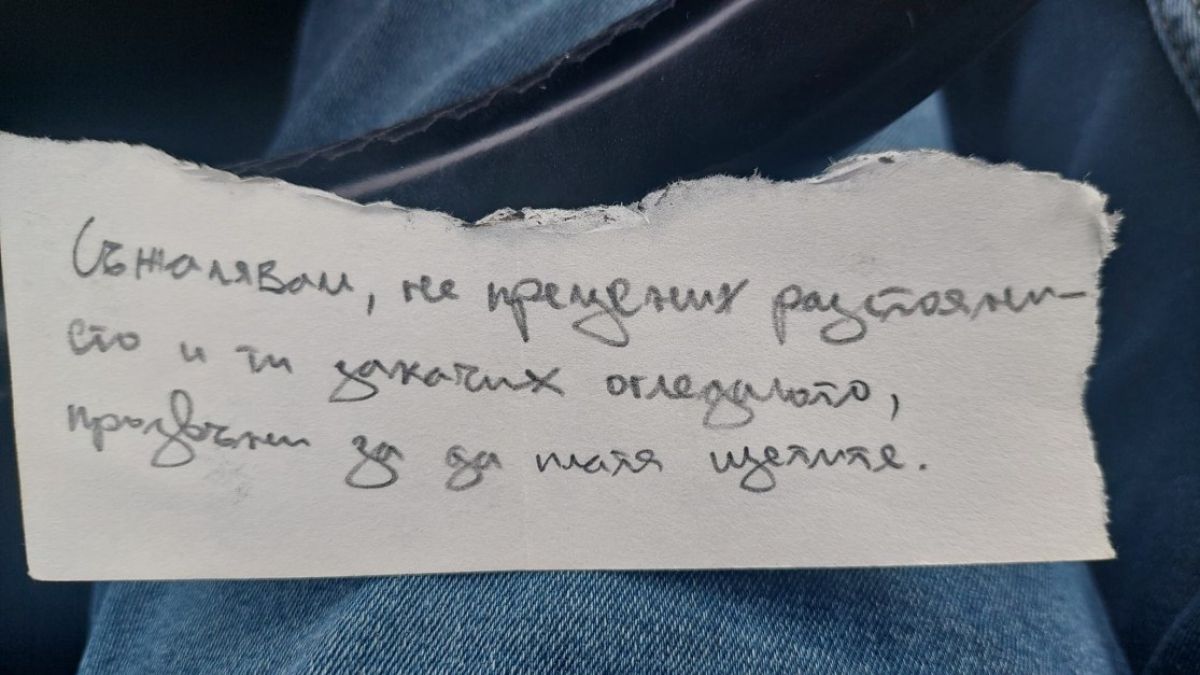 Съжалявам, не прецених разстояни-
ето и ти закачих огледалото,
прозвъни за да платя щетите.